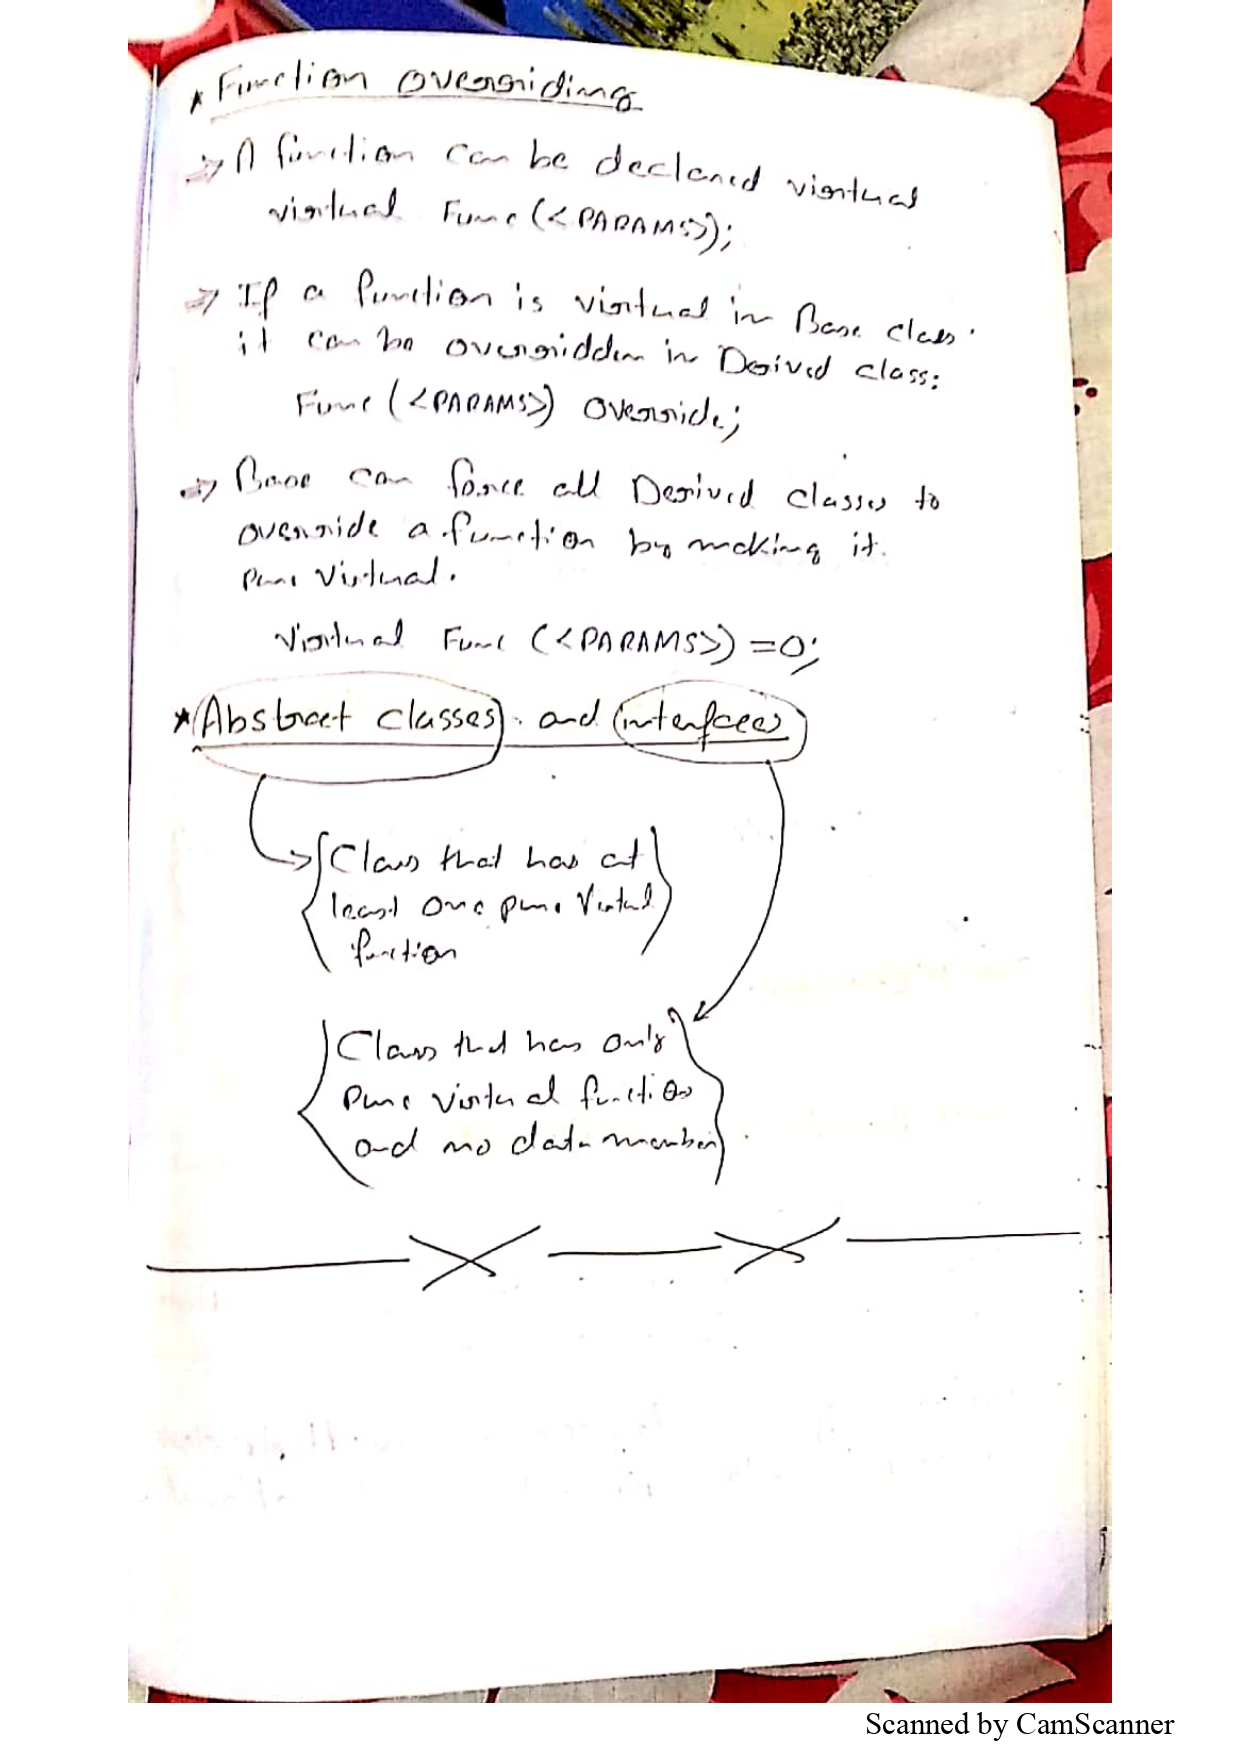 * Function overriding
⇒ A function can be declared virtual
virtual Func(<PARAMS>);
⇒ If a function is virtual in Base class
it can be overridden in Derived class:
Func(<PARAMS>) override;
⇒ Base can force all Derived classes to
override a function by making it
pure virtual.
Virtual Func (<PARAMS>) =0;
* Abstract classes and interfaces
Class that has at
least one pure virtual
function
Class that has only
pure virtual functions
and no data member
Scanned by CamScanner